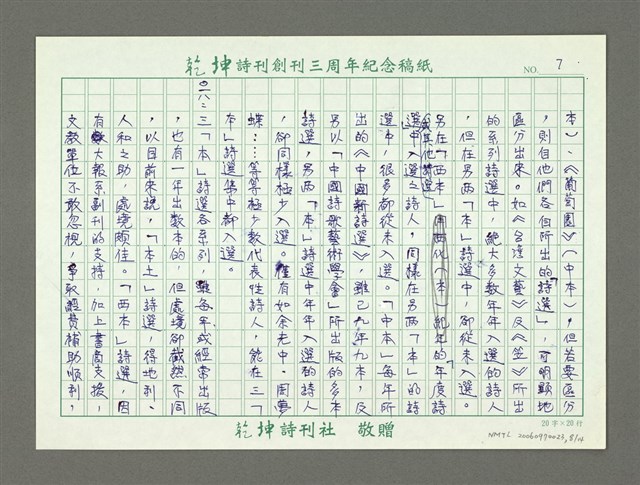 乾坤詩刊創刊三周年紀念稿紙
NO. 7
本）、《葡萄園》（中本），但若要區分
，則自他們各個所出的「詩選」，可明顯地
區分出來。如《台灣文藝》及《笠》所出
的系列詩選中，絕大多數年年入選的詩人
，但在另兩「本」詩選中，卻從未入選。
另在「西本」用西化（本）紀年的年度詩
選或其他詩選中入選之詩人，同樣在另兩「本」的詩
選中，很多都從未入選。「中本」每年所
出的《中國新詩選》，雖已九年九本，及
另以「中國詩歌藝術學會」所出版的多本
詩選，另兩「本」詩選中年年入選的詩人
，卻同樣極少入選。僅有如余光中、周夢
蝶……等等極少數代表性詩人，能在三「
本」詩選集中都入選。
三「本」詩選各系列，雖每年或經常出版
，也有一年出數本的，但處境卻截然不同
，以目前來說，「本土」詩選，得地利、
人和之助，處境頗佳。「西本」詩選，因
有大報系副刊的支持，加上書商支援，
文教單位不敢忽視，爭取經費補助順利，
乾坤詩刊社 敬贈
20字×20行
NMTL 20060990023, 8/14